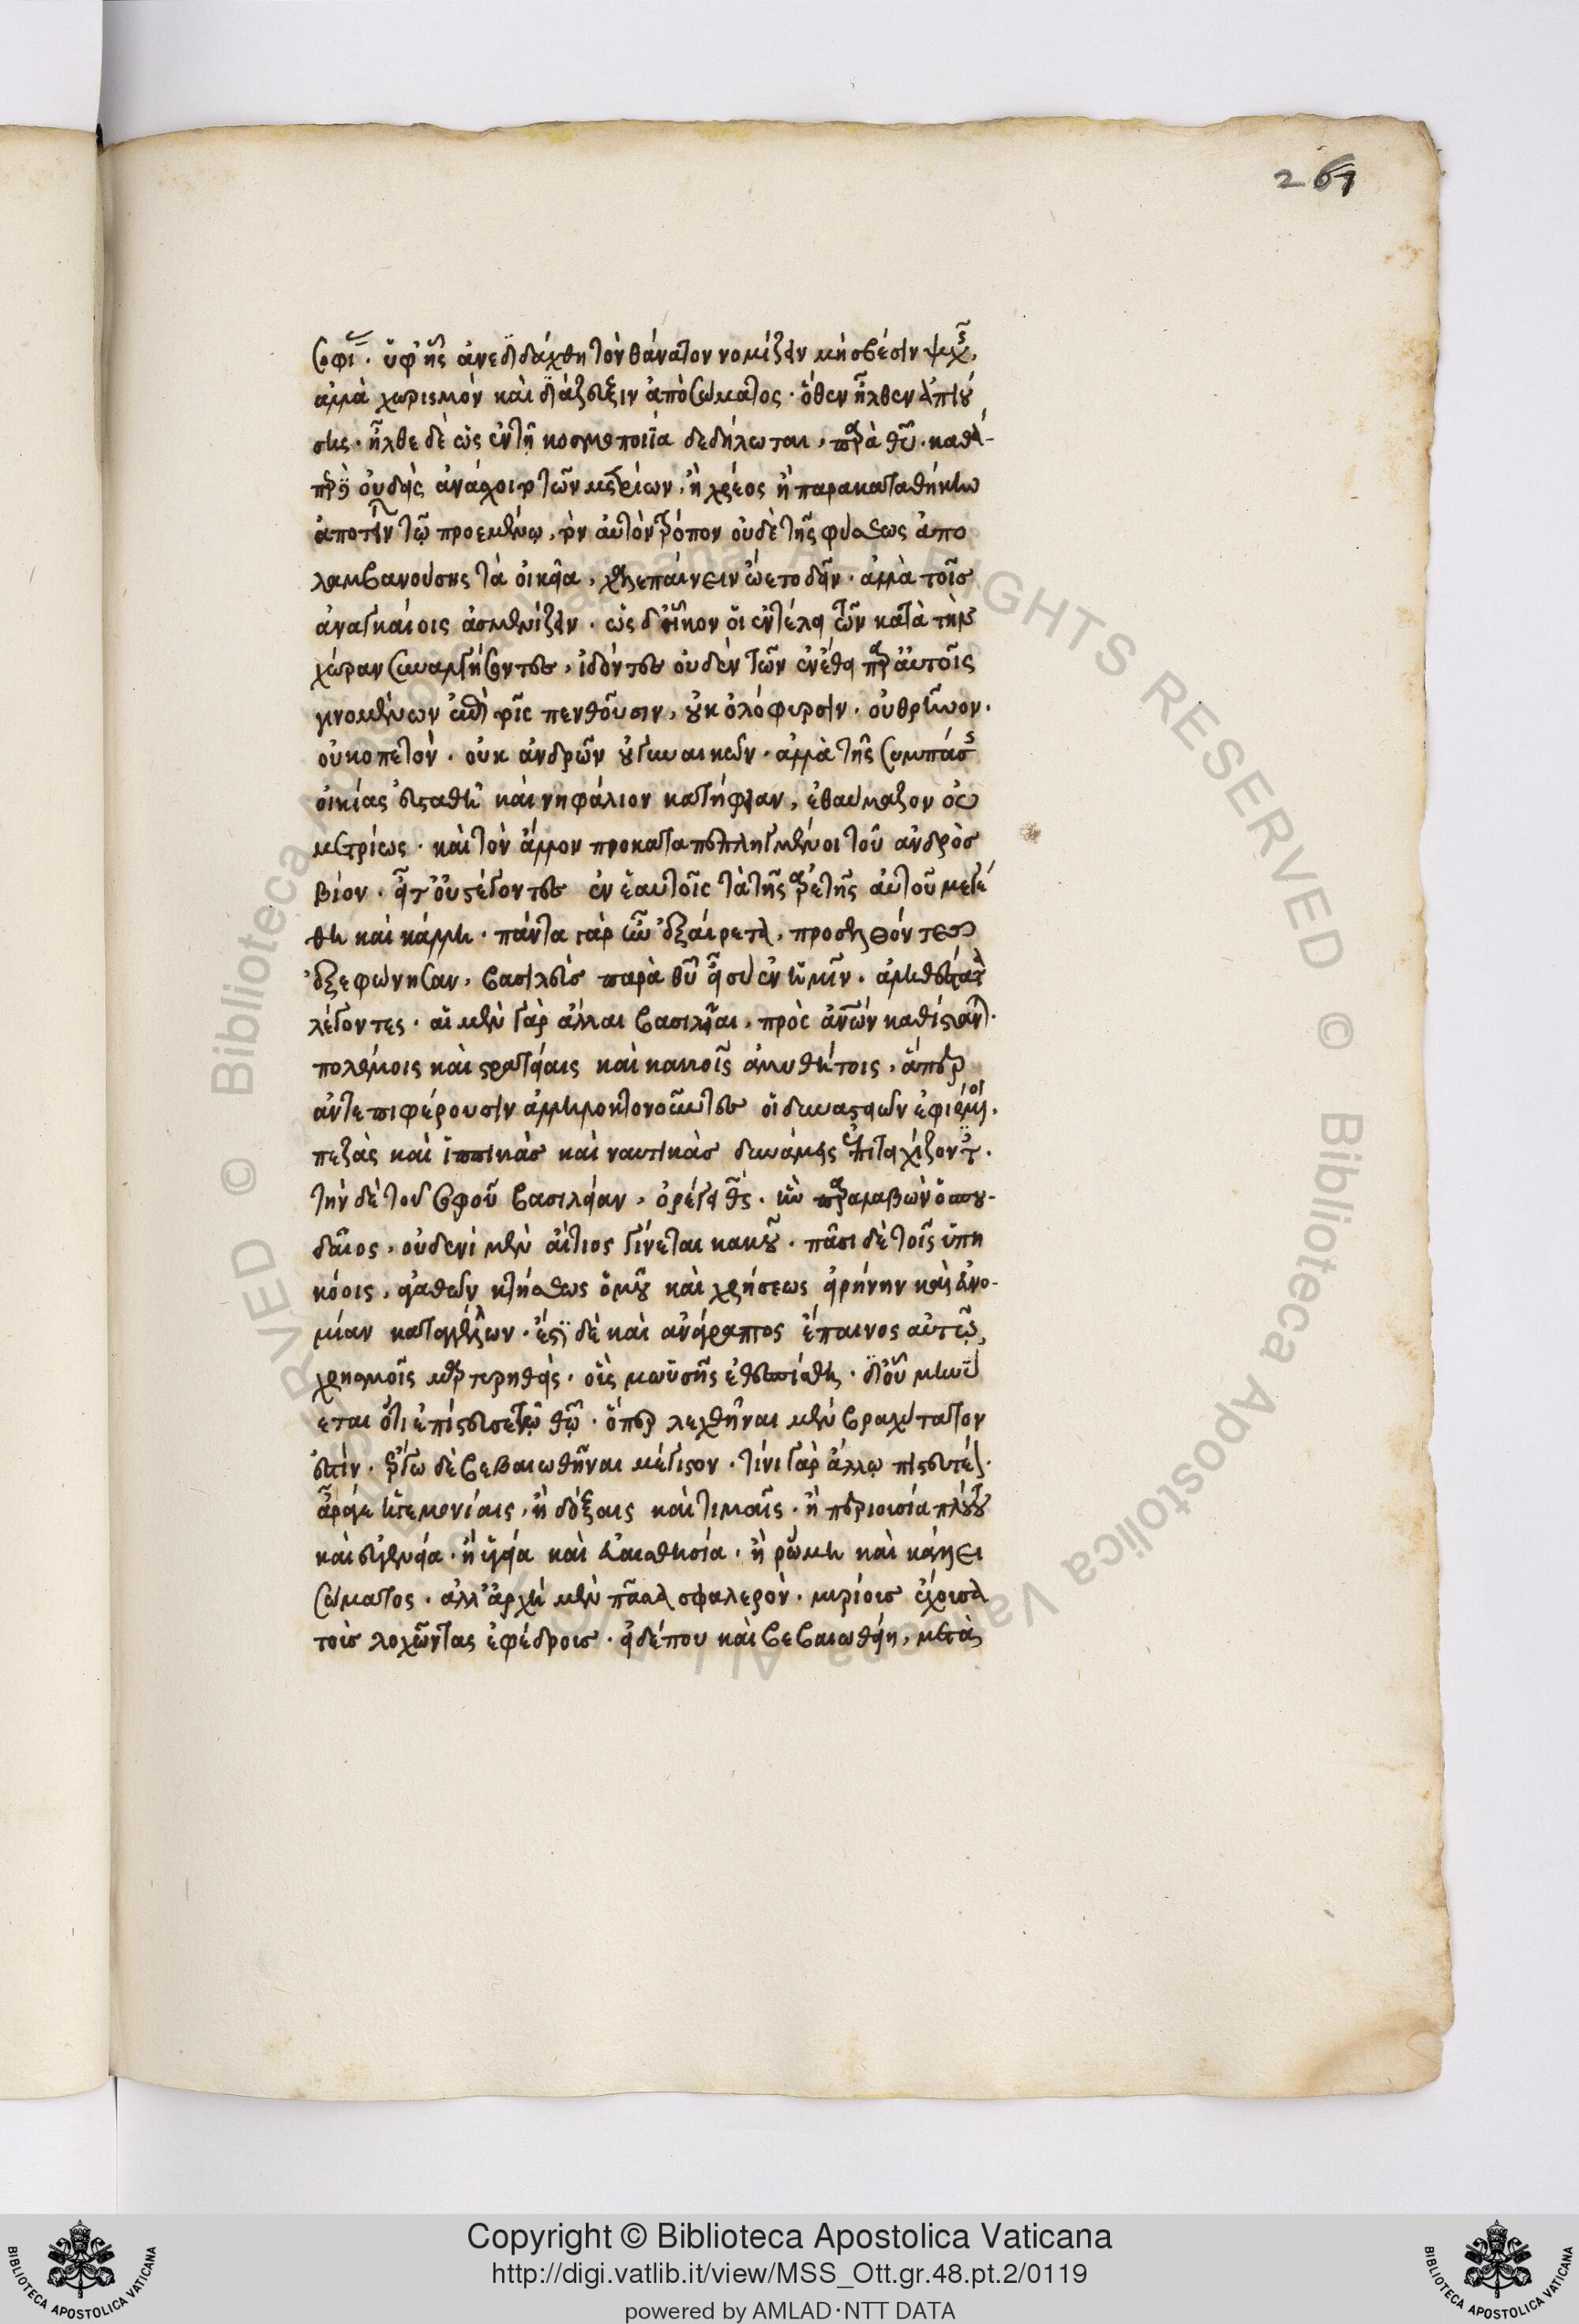 267
σοφίας. ὑφ' ἧς ἀνεδιδάχθη τὸν θάνατον νομίζειν μὴ σβέσιν ψυχῆς,
ἀλλὰ χωρισμὸν καὶ διάζευξιν ἀπὸ σώματος. ὅθεν ἦλθεν ἀπιού
σης. ἦλθε δὲ ὡς ἐν τῆ κοσμοποιΐα δεδήλωται, παρὰ θεοῦ. καθά-
περ οὐδεὶς ἀνάχοιτο τῶν μετρίων, ἢ χρέος ἢ παρακαταθήκην
ἀποτίνειν τῷ προεμένῳ, τὸν αὐτὸν τρόπον οὐδὲ τῆς φύσεως ἀπο
λαμβανούσης τὰ οἰκεῖα, χαλεπαίνειν ὤετο δεῖν. ἀλλὰ τοῖς
ἀναγκαίοις ἀσμενίζειν. ὡς δ' ἧκον οἱ ἐν τέλει τῶν κατὰ τὴν
χώραν συναλγήσοντες, ἰδόντες οὐδὲν τῶν ἐν ἔθει παρ' αὐτοῖς
γινομένων ἐπὶ τοῖς πενθοῦσιν, οὐκ ὀλόφυρσιν. οὐ θρῆνον.
οὐ κοπετὸν. οὐκ ἀνδρῶν οὐ γυναικῶν. ἀλλὰ τῆς συμπάσης
οἰκίας εὐσταθῆ καὶ νηφάλιον κατήφειαν, ἐθαύμαζον οὐ
μετρίως. καὶ τὸν ἄλλον προκαταπεπληγμένοι τοῦ ἀνδρὸς
βίον. εἶτ' οὐ στέγοντες ἐν ἑαυτοῖς τὰ τῆς ἀρετῆς αὐτοῦ μεγέ
θη καὶ κάλλη. πάντα γὰρ ἦν ἐξαίρετα, προσελθόντες
ἐξεφώνησαν, βασιλεὺς παρὰ θεοῦ εἶ σὺ ἐν ἡμῖν. ἀληθέστατα
λέγοντες. αἱ μὲν γὰρ ἄλλαι βασιλεῖαι, πρὸς ἀνθρώπων καθίστανται.
πολέμοις καὶ στρατείαις καὶ κακοῖς ἀμυθήτοις, ἅπερ
ἀντεπιφέρουσιν ἀλληλοκτονοῦντες οἱ δυναστειῶν ἐφιέμενοι.
πεζὰς καὶ ἱππικὰς καὶ ναυτικὰς δυνάμεις ἐπιτειχίζοντες.
τὴν δὲ τοῦ σοφοῦ βασιλείαν, ὀρέγει θεός. ἣν παραλαβὼν ὁ σπου-
δαῖος, οὐδενὶ μὲν αἴτιος γίνεται κακοῦ. πᾶσι δὲ τοῖς ὑπη
κόοις, ἀγαθῶν κτήσεως ὁμοῦ καὶ χρήσεως εἰρήνην καὶ εὐνο-
μίαν καταγγέλλων. ἔστι δὲ καὶ ἀνάγραπτος ἔπαινος αὐτῷ,
χρησμοῖς μαρτυρηθεὶς. οὓς μωϋσῆς ἐθεσπίσθη. δι' οὗ μηνύ
εται ὅτι ἐπίστευσε τῷ θεῷ. ὅπερ λεχθῆναι μὲν βραχύτατον
ἐστίν. ἔργω δὲ βεβαιωθῆναι μέγιστον. τίνι γὰρ ἄλλῳ πιστευτέον.
ἆρά γε ἡγεμονίαις, ἢ δόξαις καὶ τιμαῖς. ἢ περιουσία πλούτου
καὶ εὐγενεία. ἢ ὑγεία καὶ εὐαισθησία. ἢ ρώμη καὶ κάλλει
σώματος. ἀλλ' ἀρχὴ μὲν πᾶσα σφαλερὸν. μυρίους ἔχουσα
τοὺς λοχῶντας ἐφέδρους. εἰ δέ που καὶ βεβαιωθείη, μετὰ
Copyright © Biblioteca Apostolica Vaticana
http://digi.vatlib.it/view/MSS_Ott.gr.48.pt.2/0119
powered by AMLAD·NTT DATA